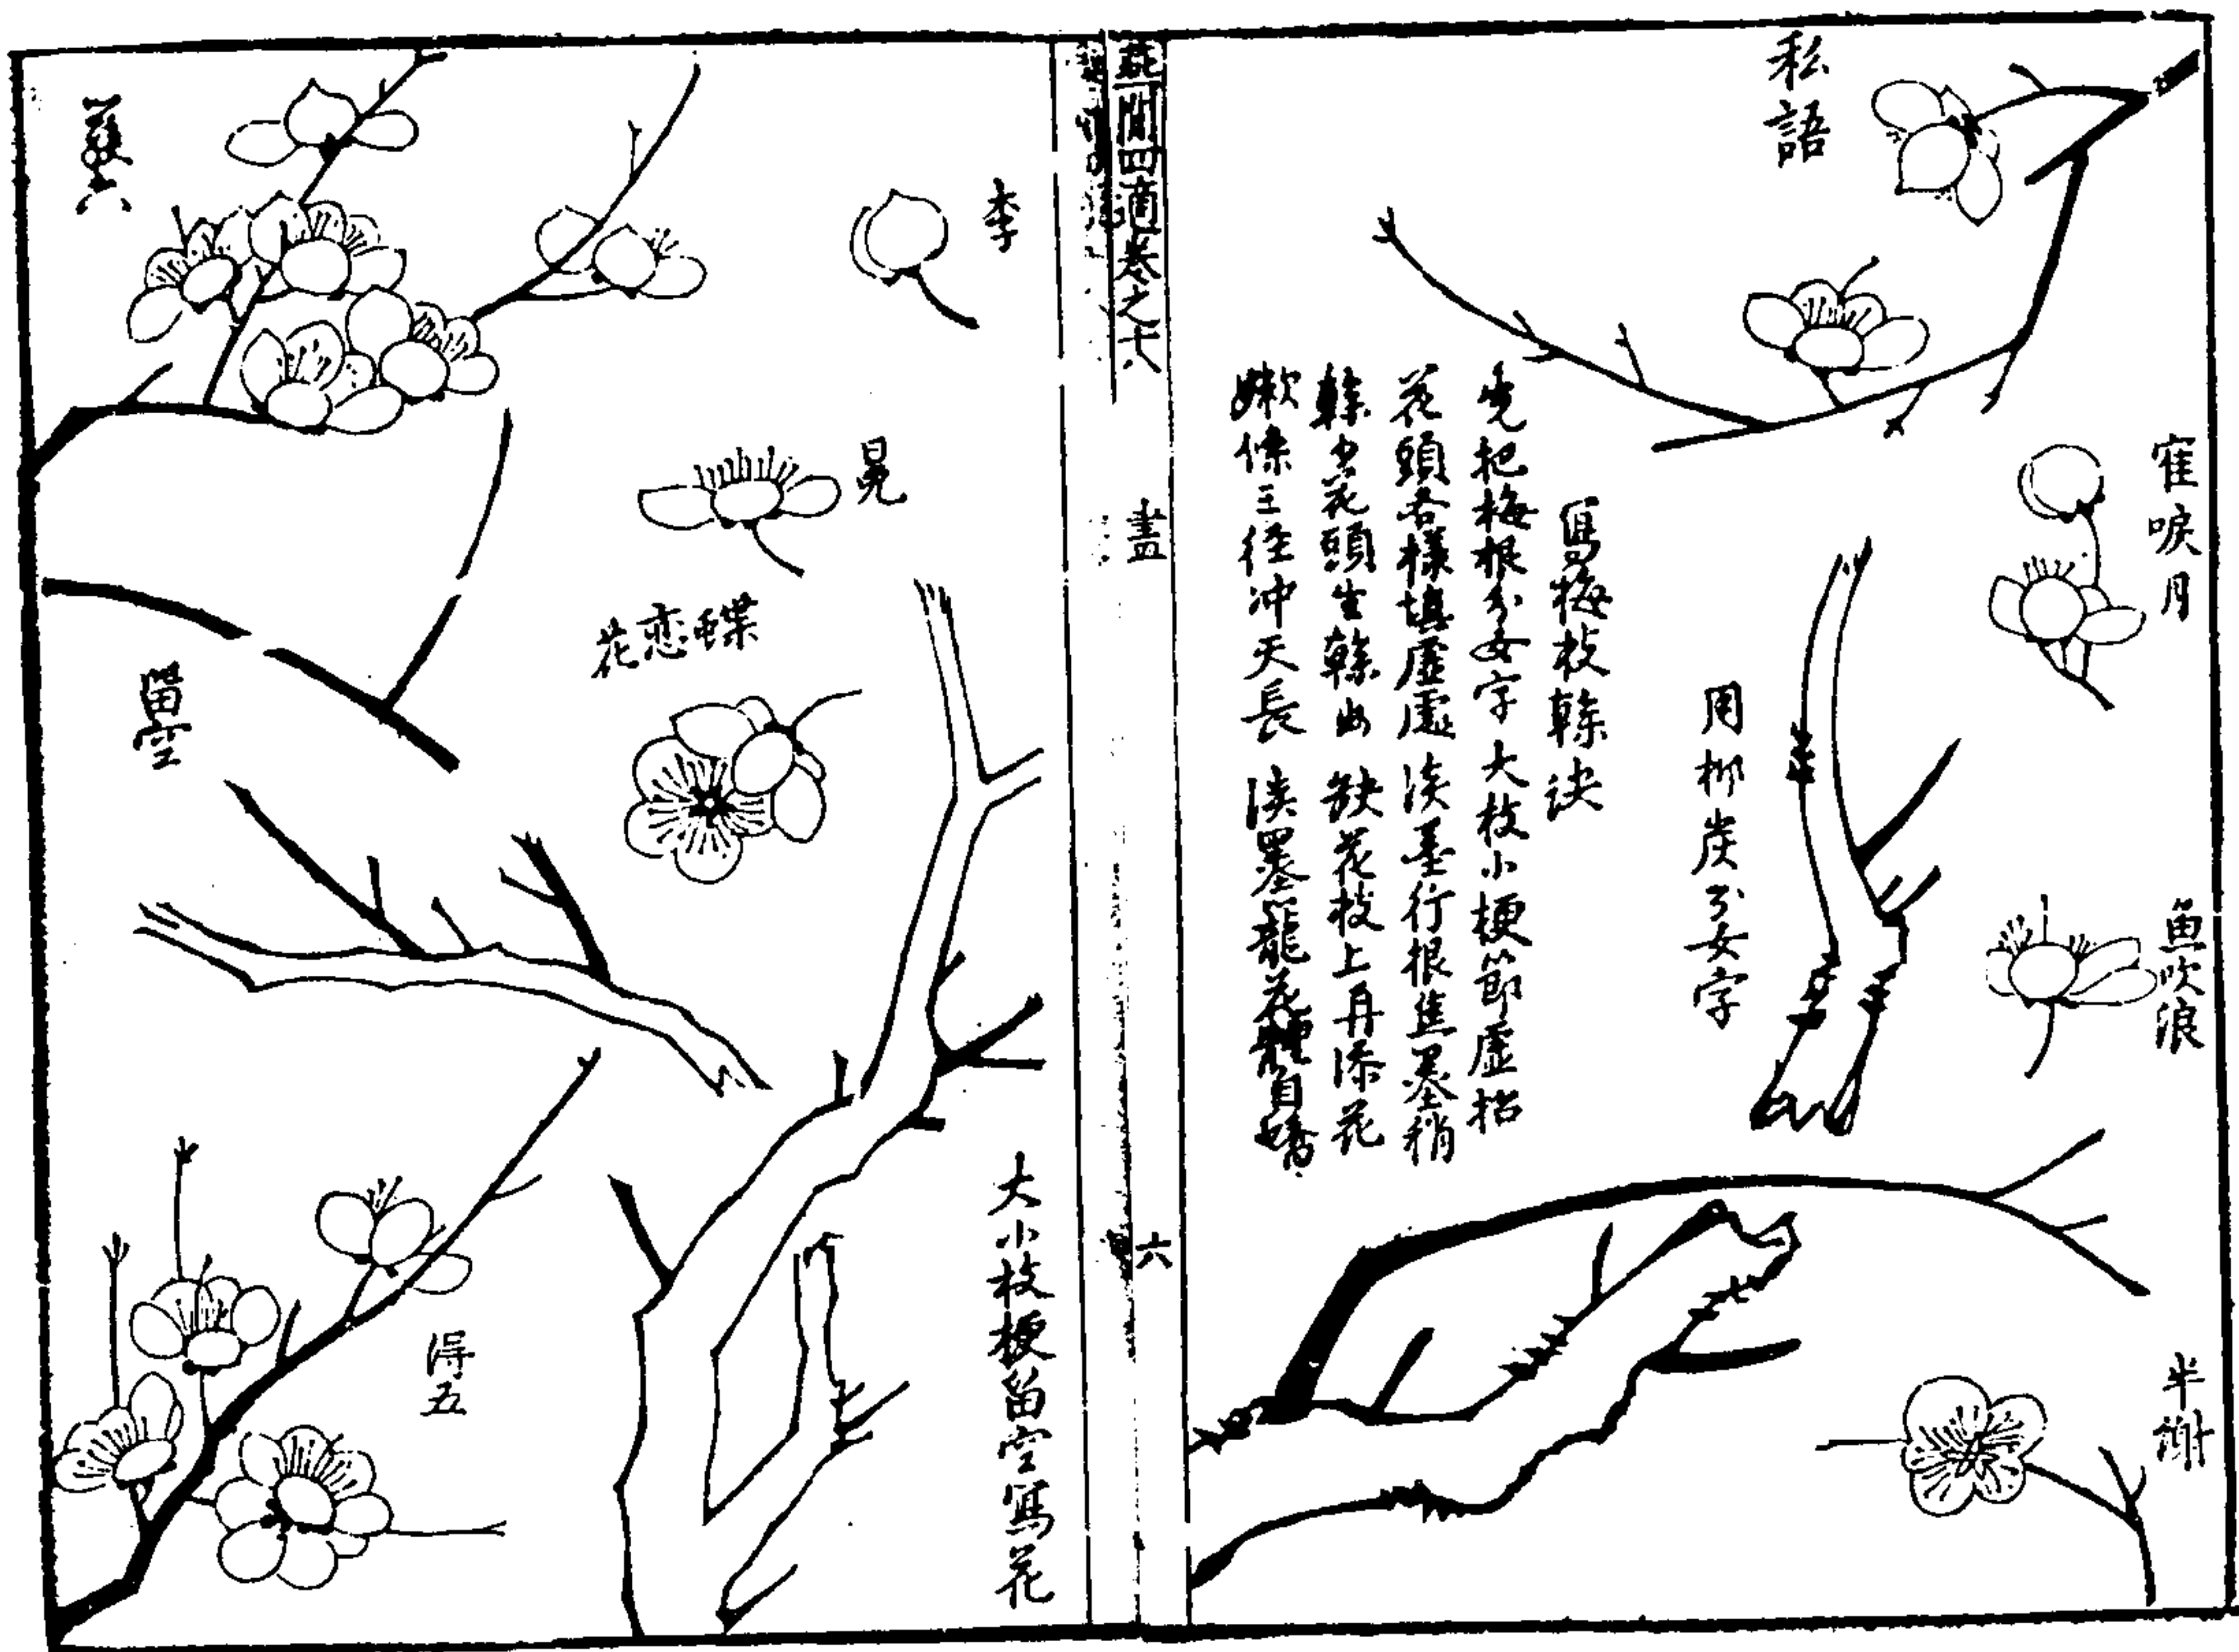 私語
寉唳月
魚吹浪
半謝
用柳炭分女字
寫梅枝榦訣
先把梅根分女字 大枝小梗節虛招
花頭各樣填虛處 淡墨行根焦墨稍
榦少花頭生榦出 缺花枝上再添花
嫩條三徑冲天長 淡墨籠花體自嬌
燕閒四適卷之十八
畫
六
李
晃
花恋蝶
大小枝梗留空寫花
留空
得五